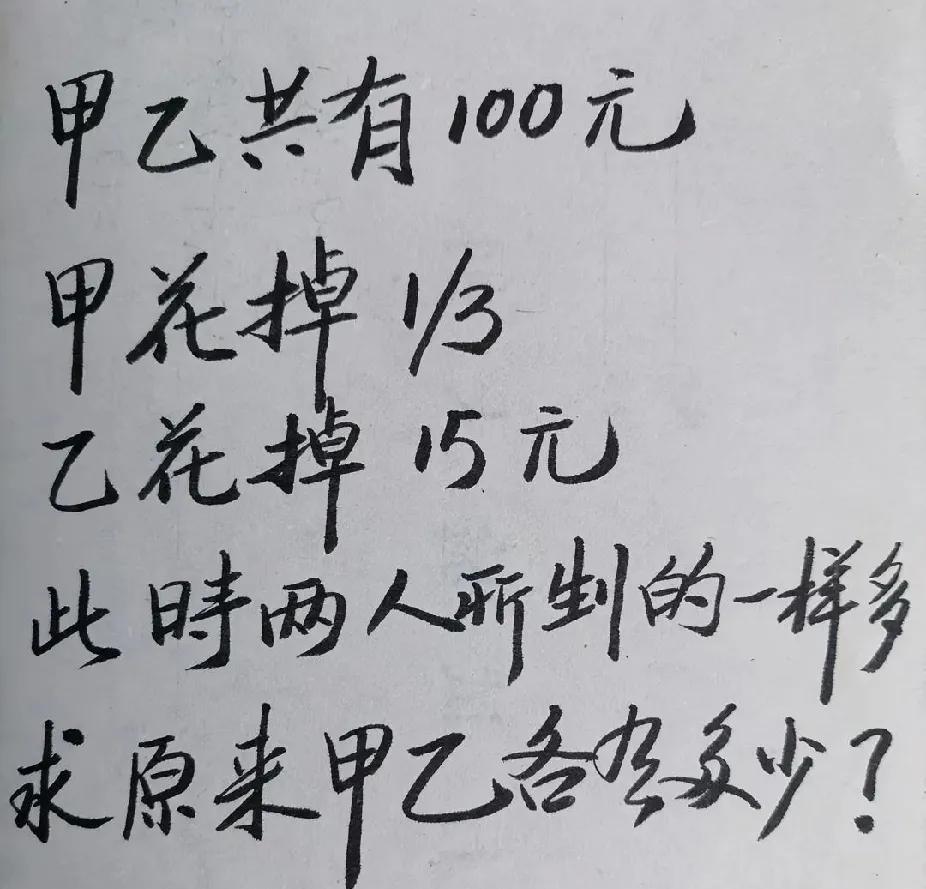 甲乙共有100元
甲花掉1/3
乙花掉15元
此時两人所剩的一样多
求原来甲乙各有多少？